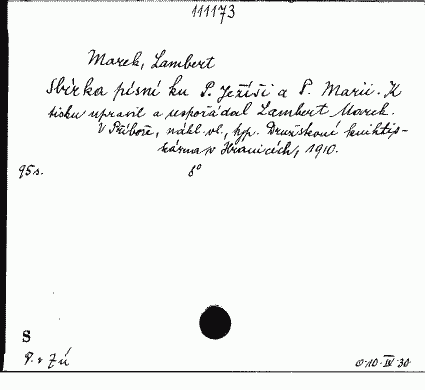 111173
Marek, Lambert
Sbírka písní ku P. Ježíši a P. Marii. K
tisku upravil a uspořádal Lambert Marek.
V Příboře, nákl. vl., typ. Družstevní knihtis-
kárna v Hranicích, 1910.
95 s. 8°
S
0·10·IV·30